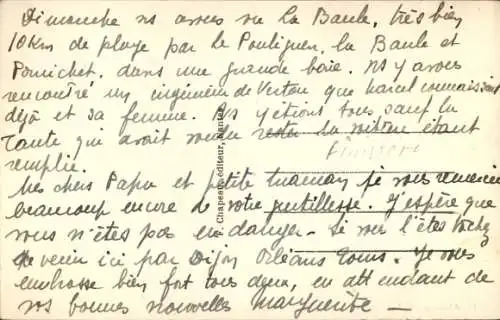 Dimanche ns avons vu La Baule, très bien
10 Km de plage par le Pouliguen, la Baule et
Pornichet, dans une grande baie. Ns y avons
rencontré un ingénieur de Vertou que Marcel connaissait
déjà et sa femme. Ns y étions tous sauf la
Tante qui avait voulu rester la voiture étant
remplie.
Mes chers Papa et petite maman je vous remercie
beaucoup encore de votre gentillesse. J'espère que
vous n'êtes pas en danger. Si vous l'êtes tâchez
de venir ici par Dijon Orléans Tours. Je vous
embrasse bien fort tous deux, en attendant de
vos bonnes nouvelles Marguerite —
F. Chapeau, éditeur, Nantes